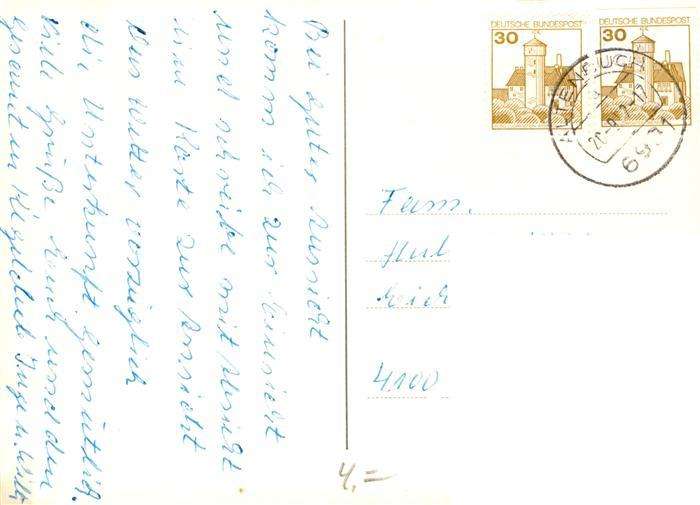 Bei guter Aussicht
komm ich zur Einsicht
und schreibe mit Absicht
eine Karte zur Ansicht
Das Wetter vorzüglich
die Unterkunft gemütlich.
Viele Grüße Euch und den
gesamten Kegelclub Inge u. Willi
DEUTSCHE BUNDESPOST
30
DEUTSCHE BUNDESPOST
30
6931
Fam.
Hub
4100
4,=